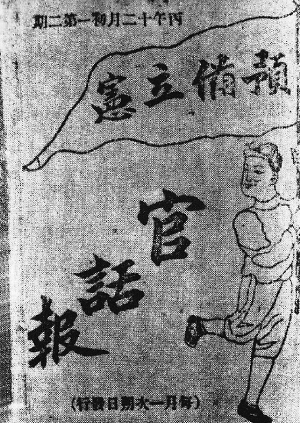 丙午十二月初一第二期
預備立憲
官話報
（每月一次朔日發行）